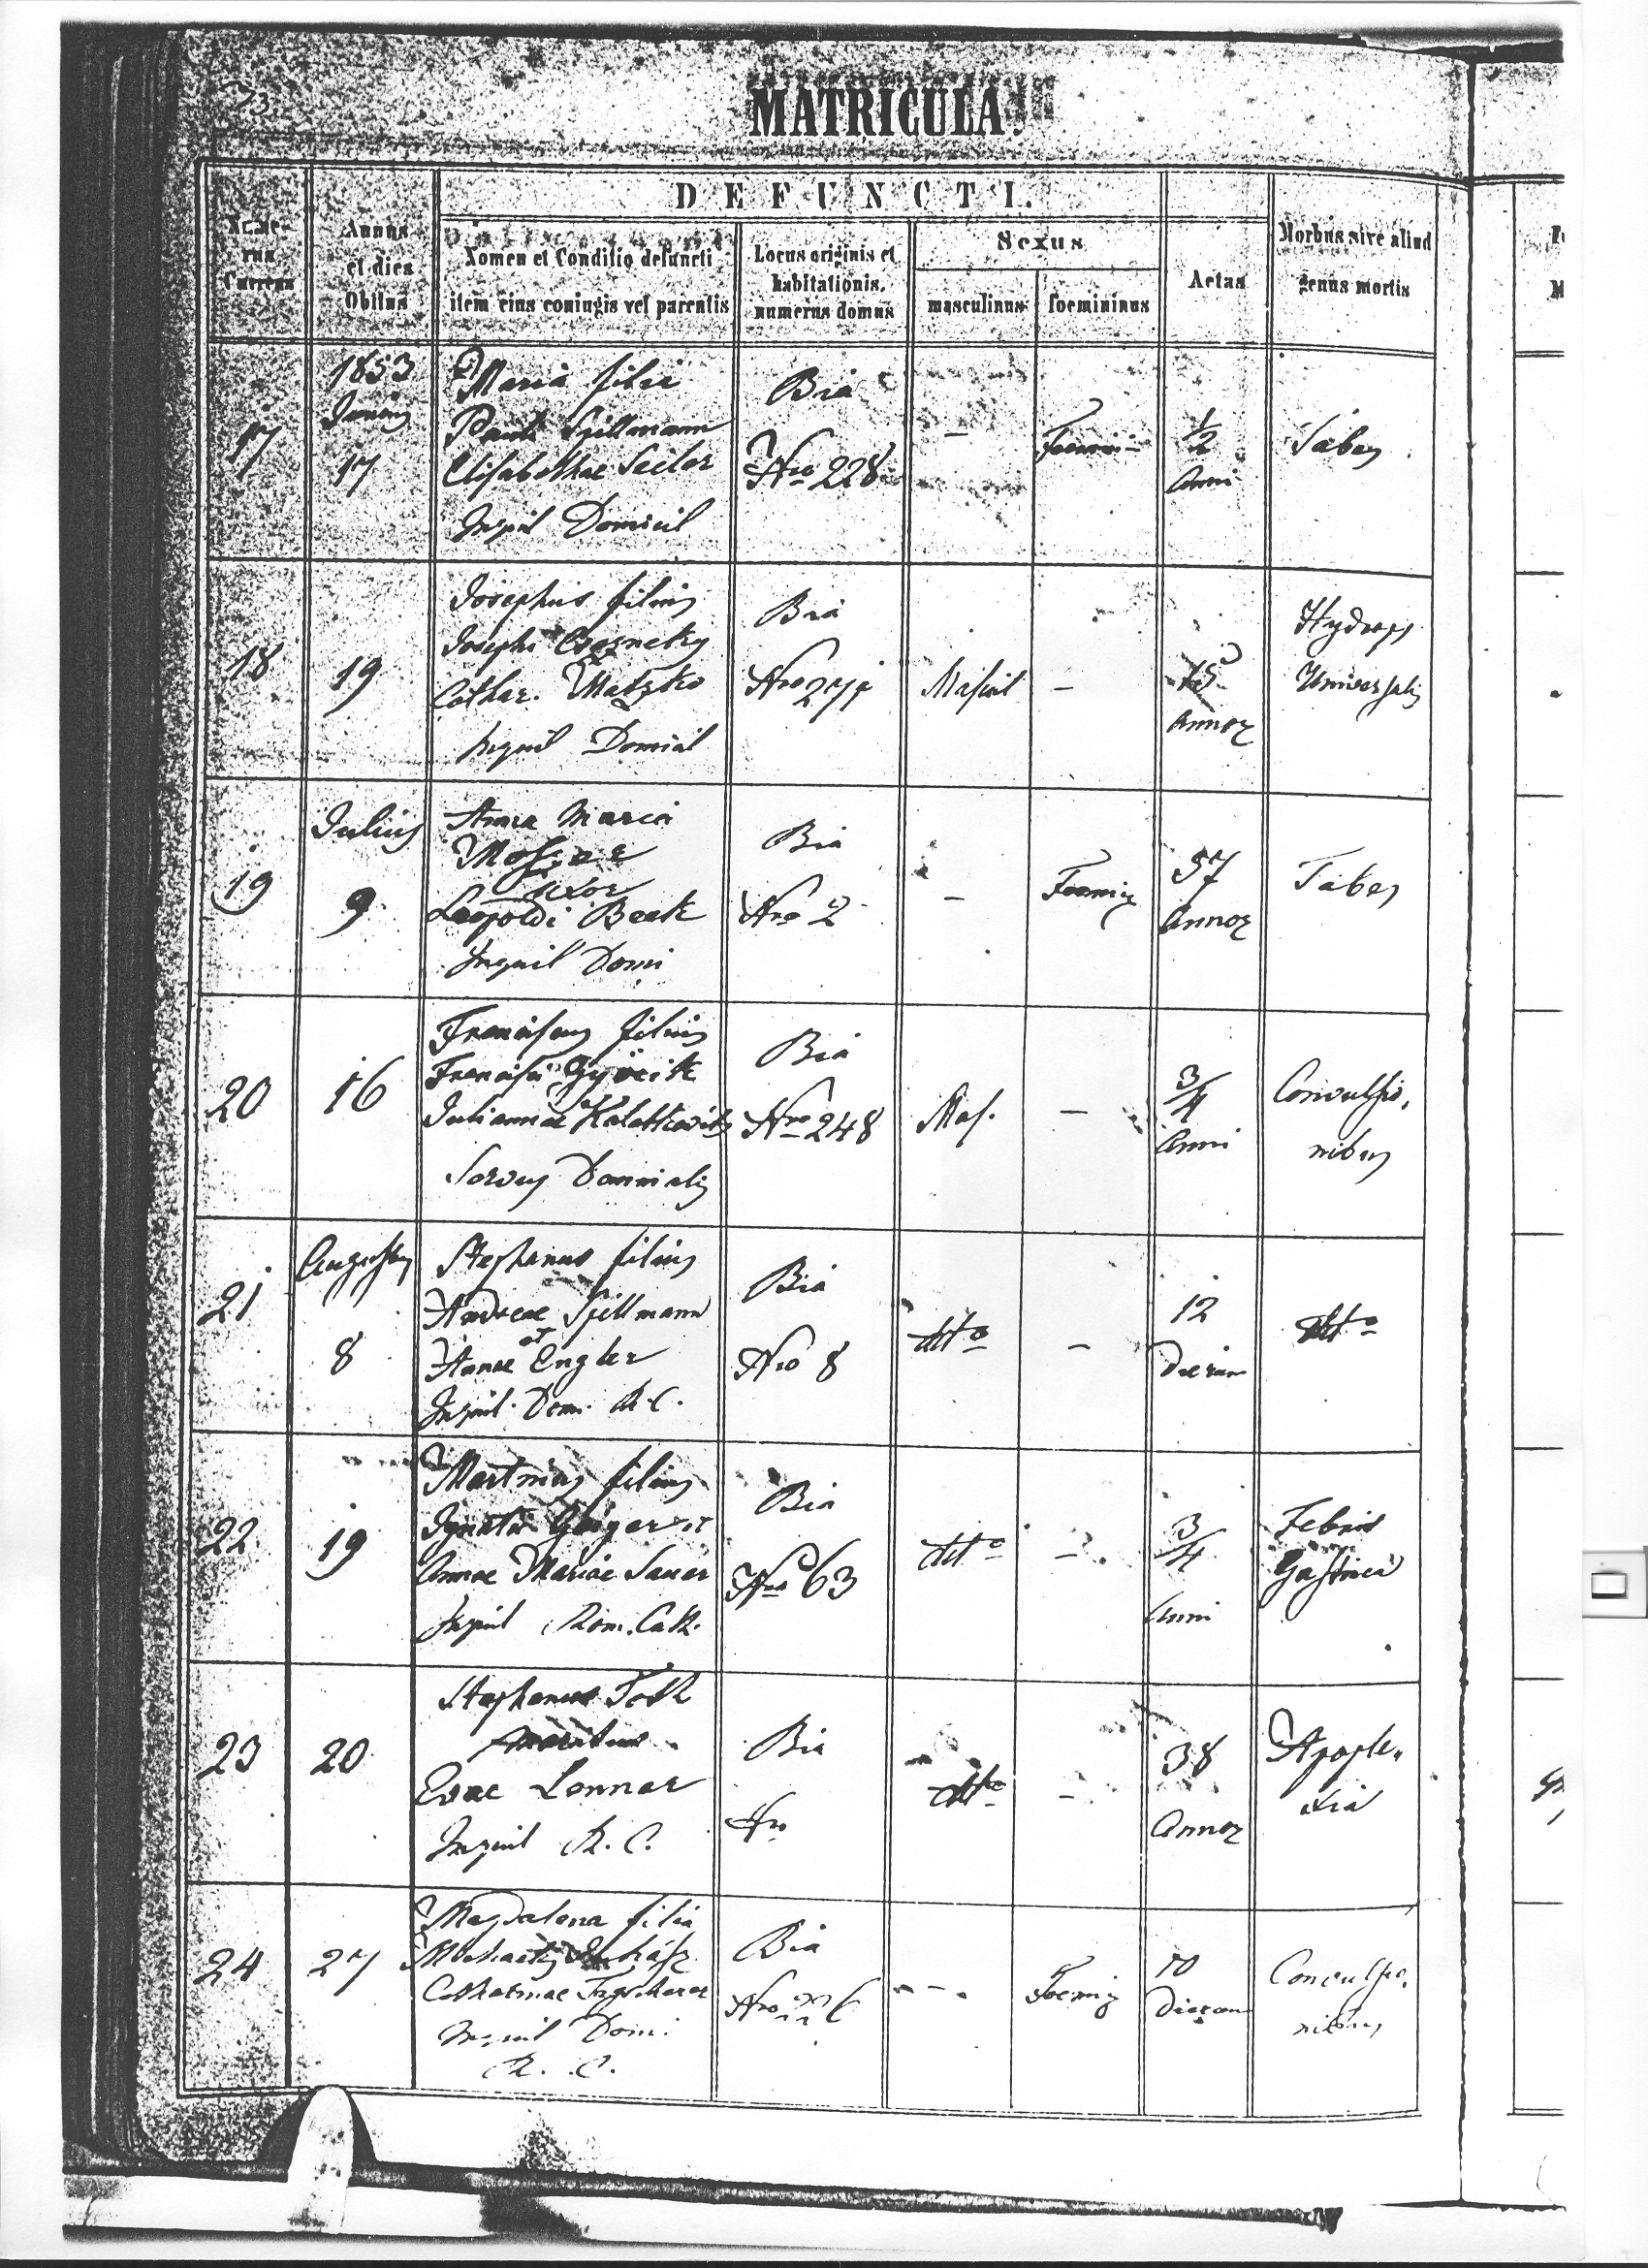 73
MATRICULA.
DEFUNCTI.
Nume-
rus
Currens
Annus
et dies
Obitus
Nomen et Conditio defuncti
item eius coniugis vel parentis
Locus originis et
habitationis,
numerus domus
Sexus
masculinus
foemininus
Aetas
Morbus sive aliud
genus mortis
17
1853
Junius
17
Maria filia
Pauli Spillmann
Elisabethae Seiler
Inquil Domicil
Bia
Nro 228
–
Foemin
1/2
Anni
Tabes
18
19
Josephus filius
Josephi
Cathar. Matzko
Inquil Domicil
Bia
Nro
Mascul
–
15
Annor
Hydrops
Universalis
19
Julius
9
Anna Maria
Moser
uxor
Leopoldi Beck
Inquil Domi
Bia
Nro 2
–
Foemin
57
Annor
Tabes
20
16
Franciscus filius
Francisci
Juliannae
Servus Dominalis
Bia
Nro 248
Mas.
–
3/4
Anni
Convulsio,
nibus
21
Augustus
8
Stephanus filius
Andreae Spillmann
et
Annae Engler
Inquil. Dom. R. C.
Bia
Nro 8
ditto
–
12
Dierum
ditto
22
19
Martinus filius
Ignatii et
Annae Mariae Sauer
Inquil Rom. Cath.
Bia
Nro 63
ditto
–
3/4
Anni
Febris
Gastrica
23
20
Stephanus Toth
maritus
Evae Lennar
Inquil R. C.
Bia
Nro
ditto
–
38
Annor
Apople,
xia
24
27
Magdalena filia
Michaelis Juhász
Catharinae
Inquil Domi.
R. C.
Bia
Nro
–
Foemin
10
Dierum
Convulsio,
nibus